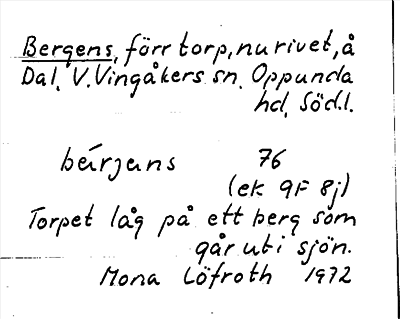 Bergens, förr torp, nu rivet, å
Dal, V. Vingåkers sn. Oppunda
hd, Södl.
bárjans 76
(ek 9F 8j)
Torpet låg på ett berg som
går ut i sjön.
Mona Löfroth 1972